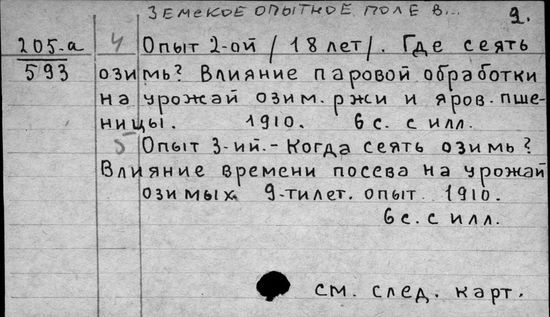 Земское опытное поле в... 2.
205-а 4 Опыт 2-ой / 18 лет/. Где сеять
593 озимь? Влияние паровой обработки
на урожай озим. ржи и яров. пше-
ницы. 1910. 6 с. с илл.
5 Опыт 3-ий. - Когда сеять озимь?
Влияние времени посева на урожай
озимых. 9-тилет. опыт. 1910.
6 с. с илл.
см. след. карт.